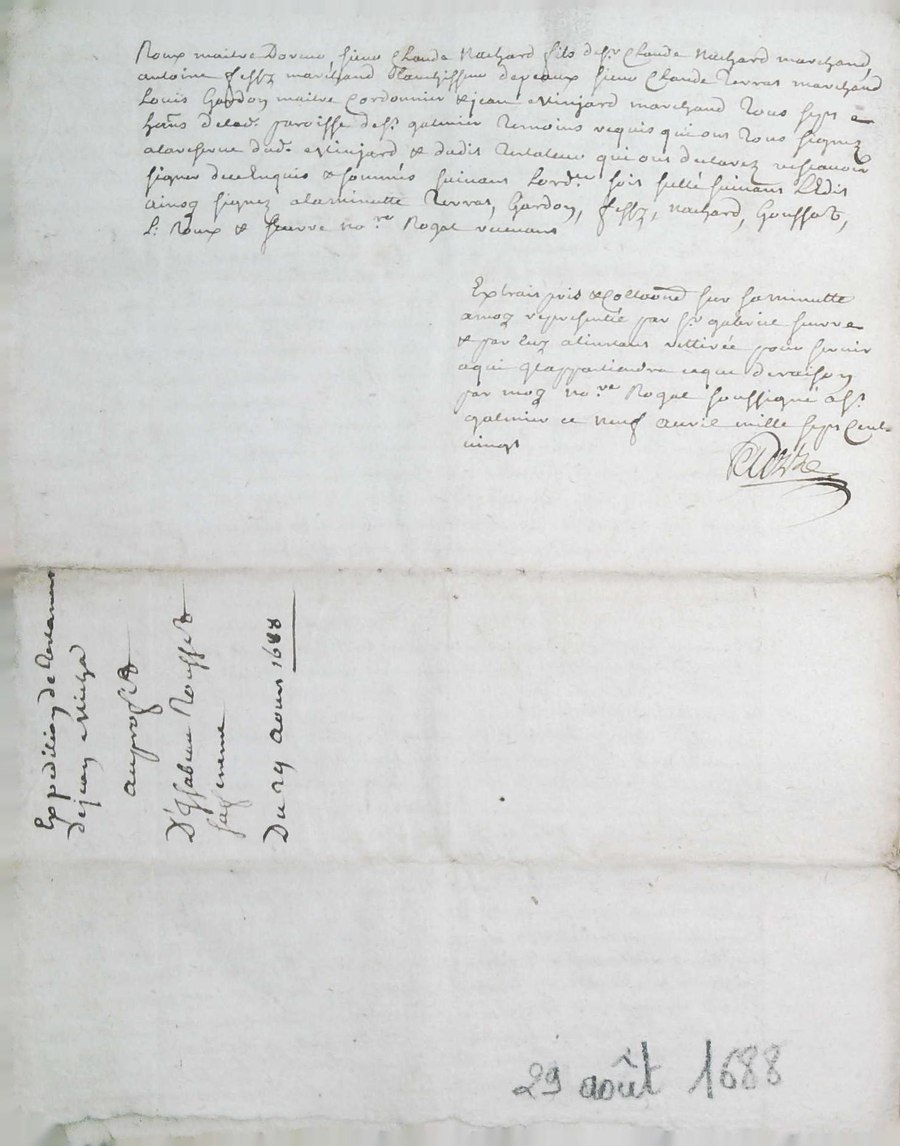 Roux maitre Doreur, sieur Claude Nachard fils de sr Claude Nachard marchand,
antoine marchand Blanchisseur depeaux sieur Claude Terras marchand
Louis Gardon maitre Cordonnier & jean Minjard marchand Tous sept
ha͞ns delad. paroisse de st galmier Temoins requis qui ont Tous signez
alareserve dud. Minjard & dudit Testateur qui ont declarez nesçavoir
signer de ce Enquis & sommés suivant Lord.ce sois sellé suivant L'Edit
ainsy signez alaminutte Terras, Gardon, Nachard, Gousset,
L. Roux & feurre no.re Royal recevant
Extrait pris & collationné sur saminutte
amoy representée par sr gabriel feurre
& par luy alinstant rettirée pour servir
aqui Jlappartiendra ceque deraison
par moy no.re Royal soussigné a st
galmier ce neuf avril mille sept Cent
vingt
Expedition de Testament
dejean Minja
auprofit
D'Ysabeau Rousset
safemme
Du 29 Aoust 1688
29 août 1688